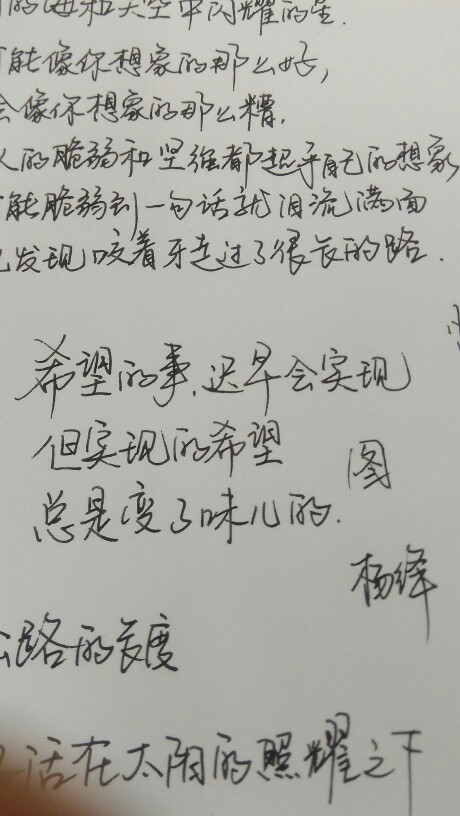 的海和天空中闪耀的星.
能像你想象的那么好,
会像你想象的那么糟.
人的脆弱和坚强都超乎自己的想象,
能脆弱到一句话就泪流满面
发现咬着牙走过了很长的路.
希望的事,迟早会实现
但实现的希望
图
总是变了味儿的.
杨绛
路的长度
活在太阳的照耀之下